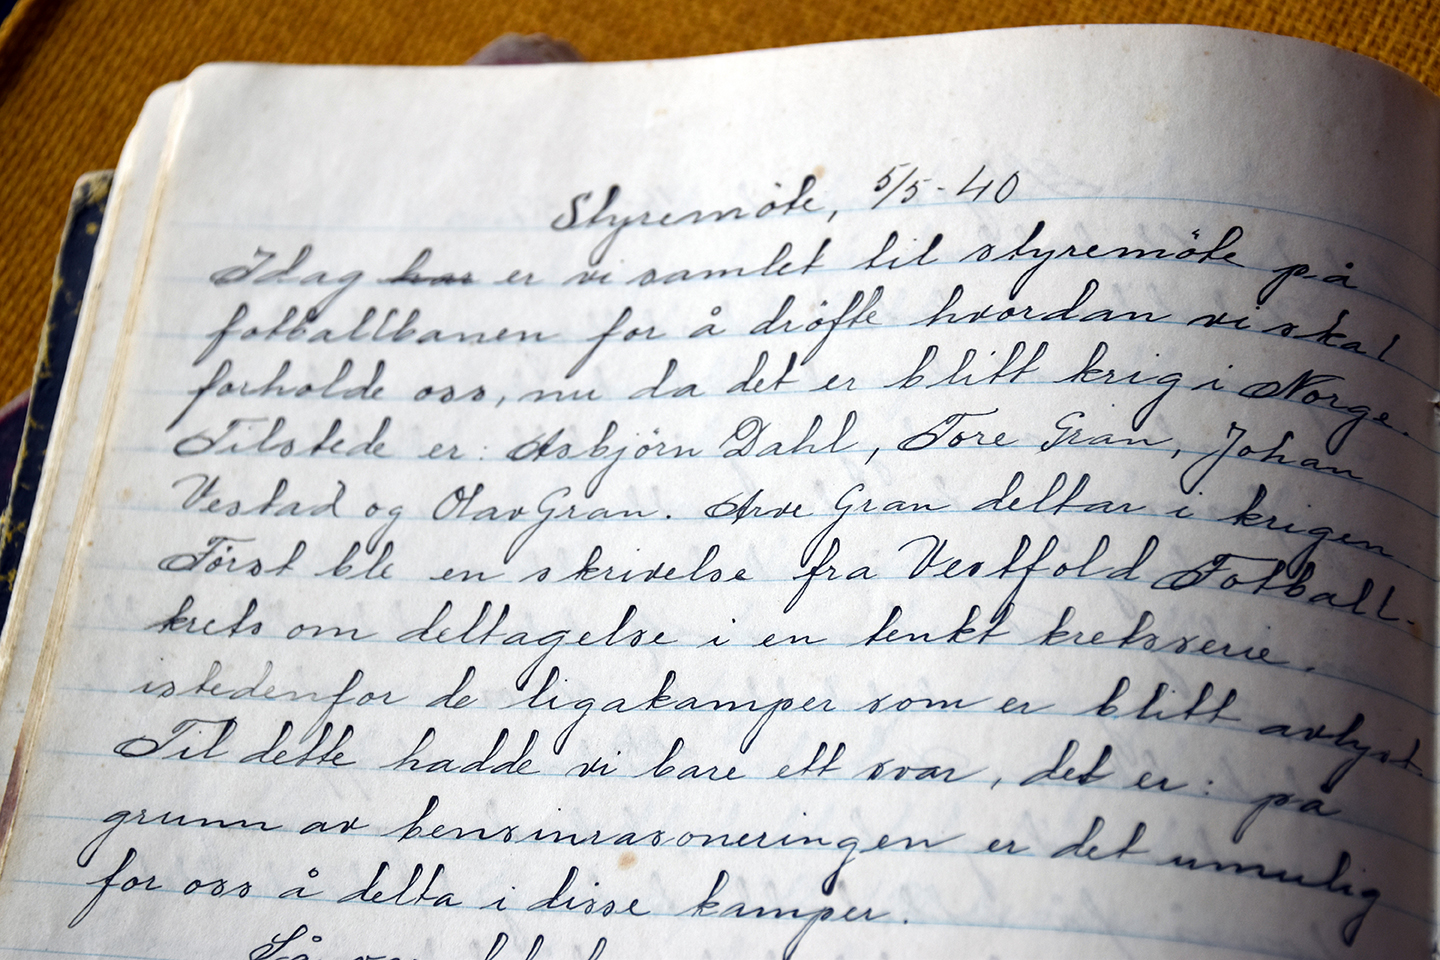 Styremöte, 5/5-40
Idag har er vi samlet til styremöte på
fotballbanen for å dröfte hvordan vi skal
forholde oss, nu da det er blitt krig i Norge.
Tilstede er: Asbjörn Dahl, Tore Gran, Johan
Vestad og Olav Gran. Arve Gran deltar i krigen.
Först ble en skrivelse fra Vestfold Fotball-
krets om deltagelse i en tenkt kretsserie,
istedenfor de ligakamper som er blitt avlyst.
Til dette hadde vi bare ett svar, det er: på
grunn av bensinrasoneringen er det umulig
for oss å delta i disse kamper.
Så